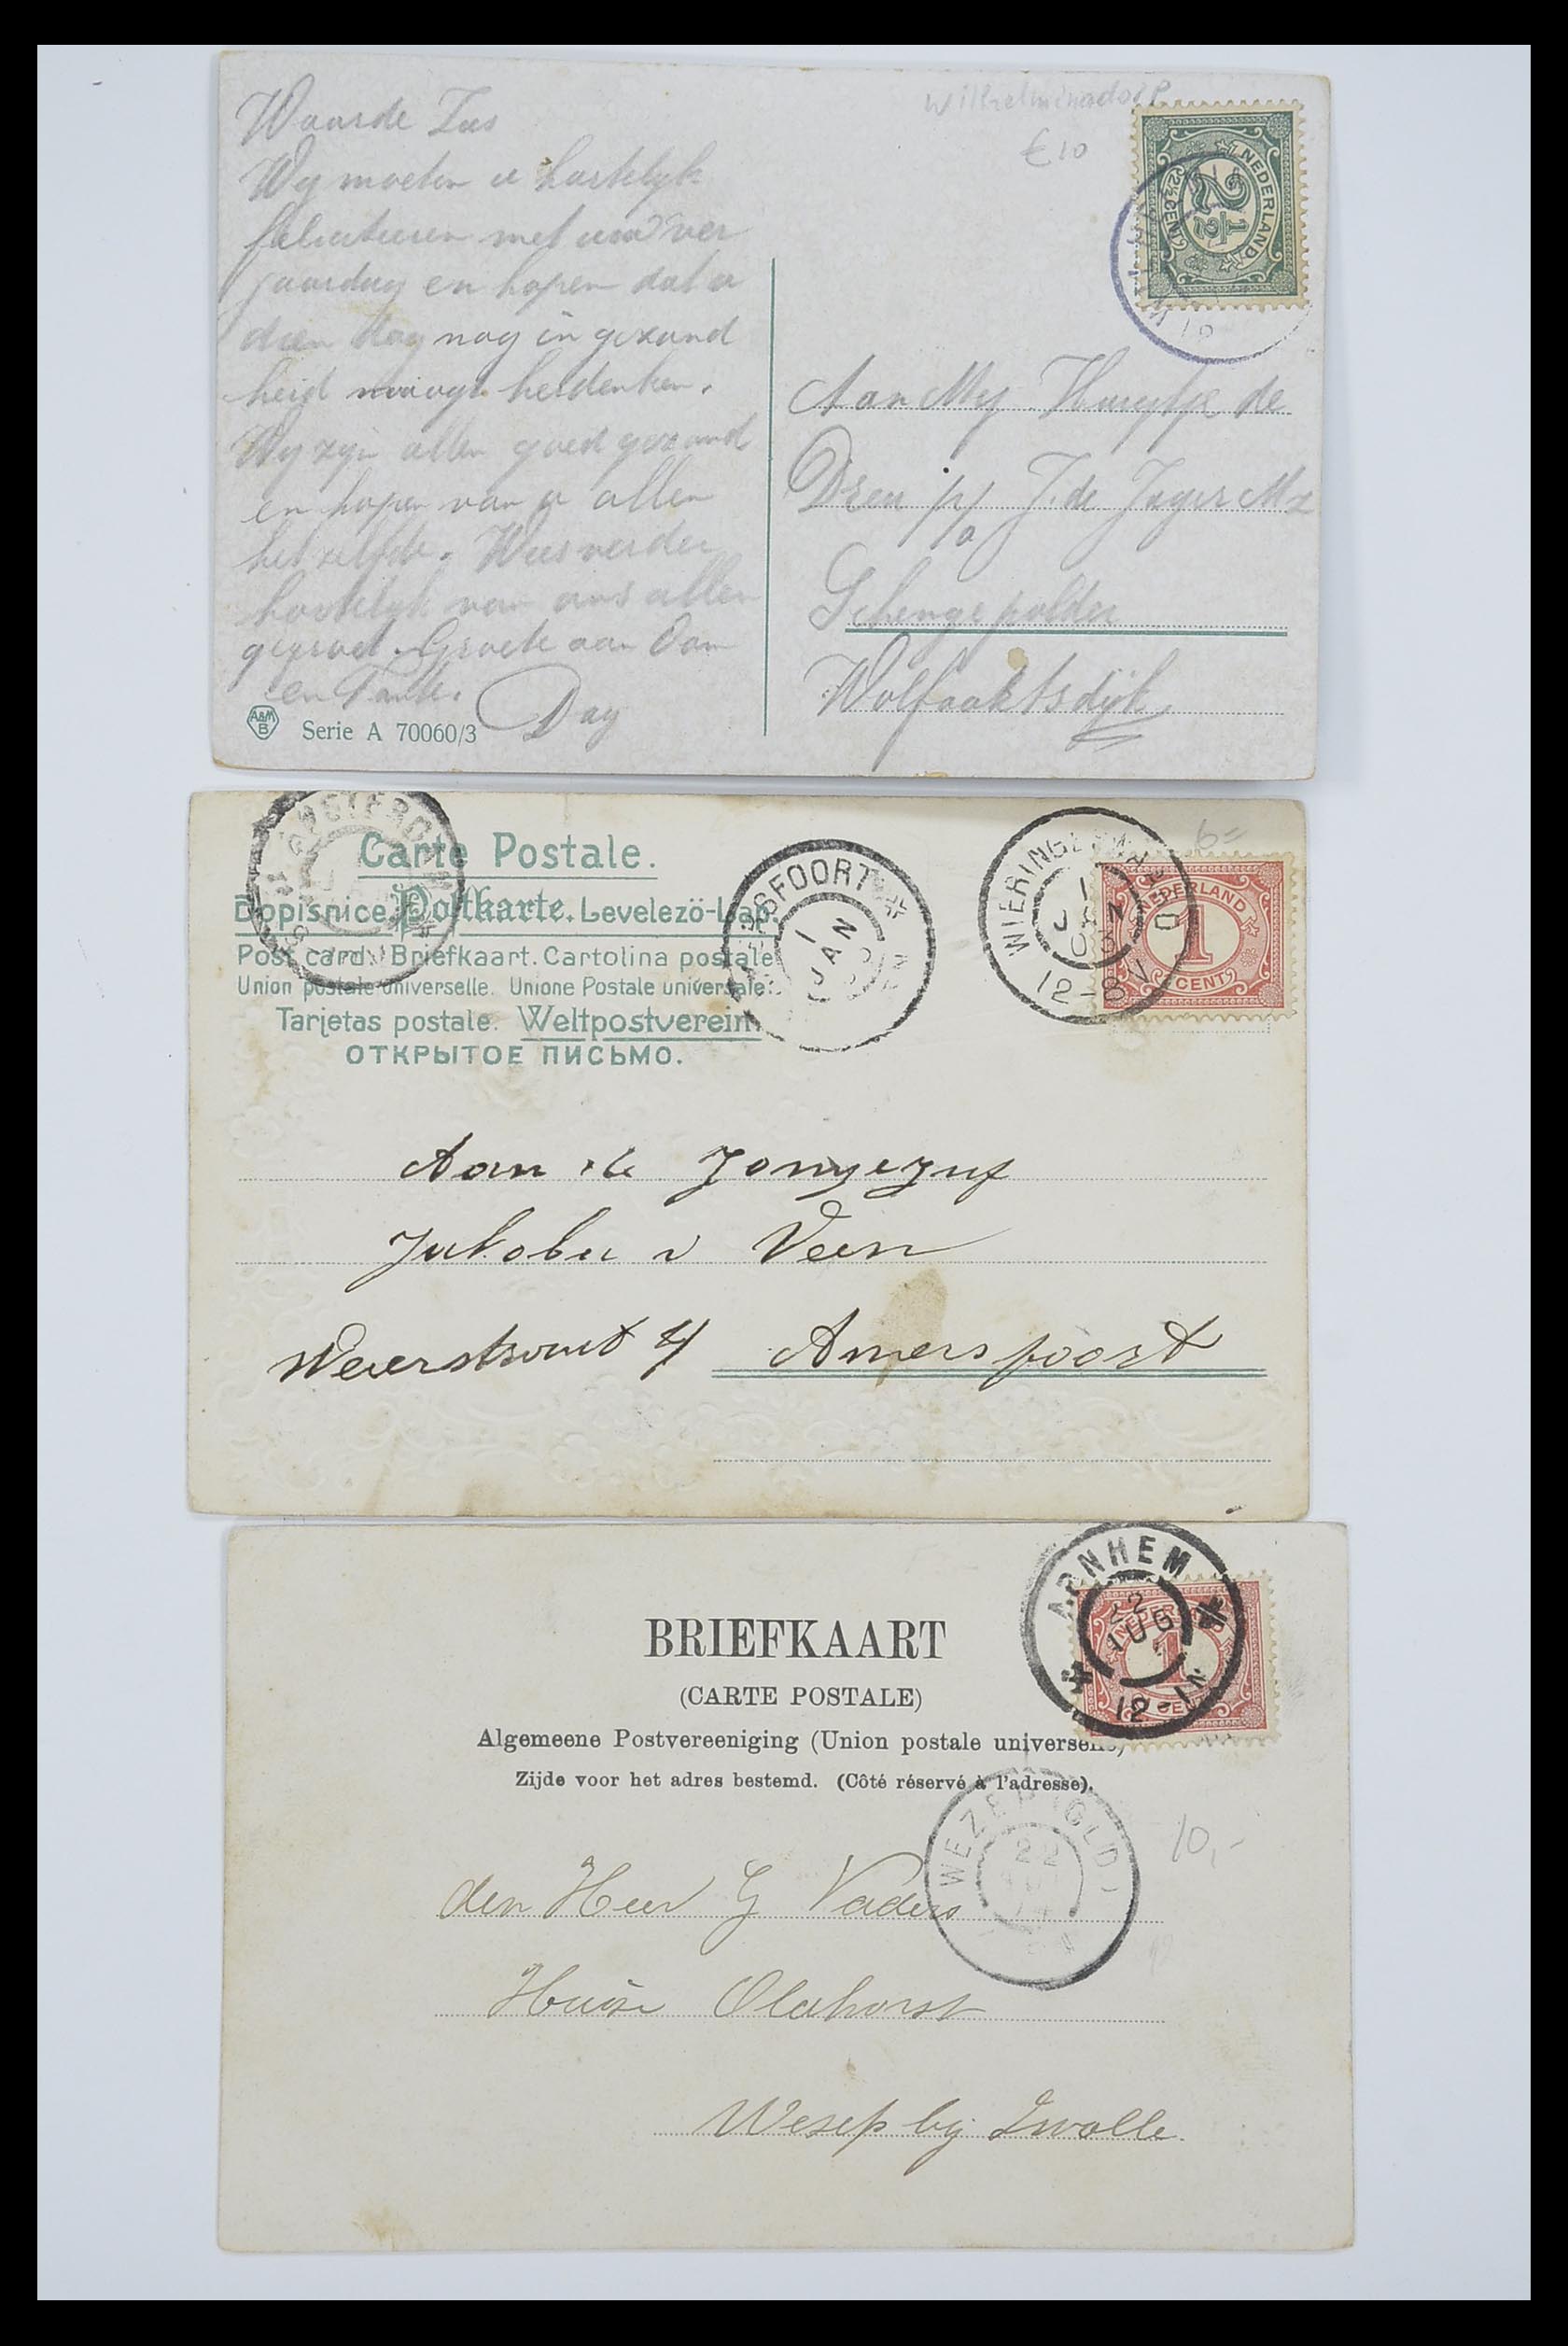 Wilhelminadorp
€10
Waarde Zus
Wij moeten u hartelijk
feliciteeren met uw ver
jaardag en hopen dat u
dien dag nog in gezond
heid moogt herdenken.
Wij zijn allen goed gezond
en hopen van u allen
het zelfde. Wees verder
hartelijk van ons allen
gegroet. Groete aan Oom
en Tante.
Dag
A&M
B
Serie A 70060/3
NEDERLAND
2½
2½ CENT
Aan Mej
de
Dreu p/a J. de Jager Mz
Schengepolder
Wolfaartsdijk
Carte Postale.
Dopisnice. Postkarte. Levelezö-Lap.
Post card. Briefkaart. Cartolina postale
Union postale universelle. Unione Postale universale.
Tarjetas postale. Weltpostverein.
ОТКРЫТОЕ ПИСЬМО.
AMSTERDAM
AMERSFOORT
1
JAN
WIERINGERWAARD
1
JAN
12-8V
6=
NEDERLAND
1
CENT
Aan de Jongejuf
Jakoba v Veen
Weverstraat 4 Amersfoort
ARNHEM
22
AUG
12-1N
NEDERLAND
1
CENT
BRIEFKAART
(CARTE POSTALE)
Algemeene Postvereeniging (Union postale universelle)
Zijde voor het adres bestemd. (Côté réservé à l'adresse).
WEZEP (GLD)
22
AUG
10,-
den Heer G Vaders
Huize Oldhorst
Wesep bij Zwolle.